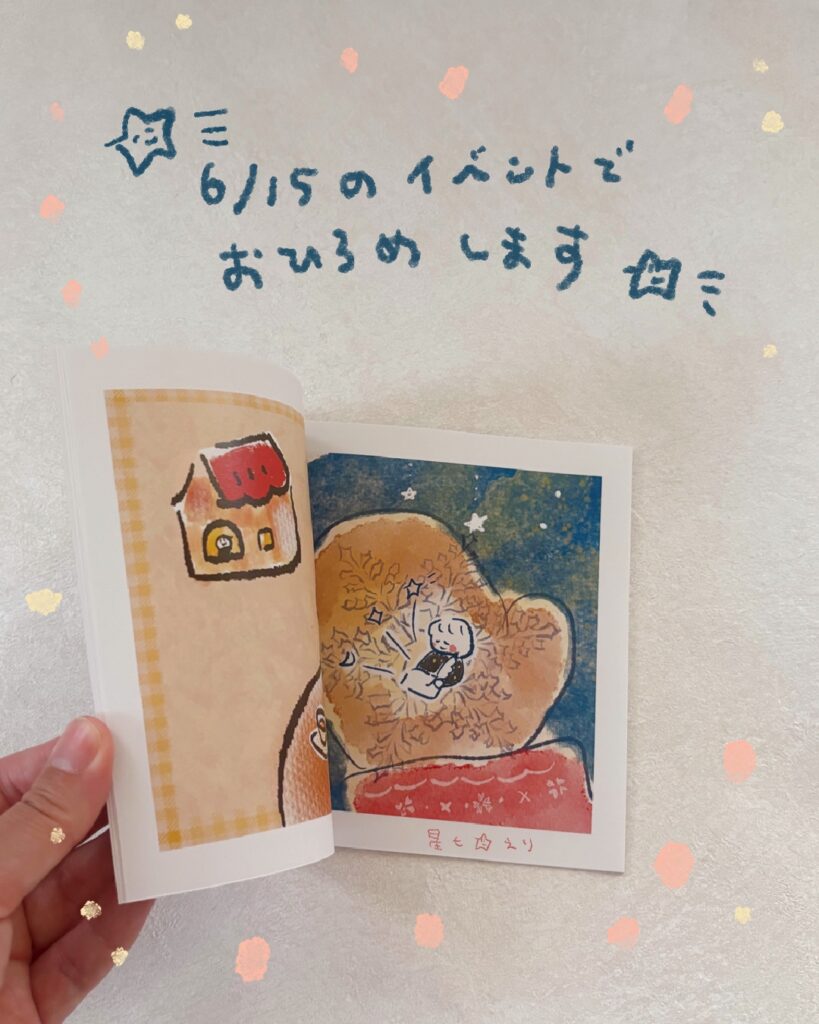 6/15のイベントで
おひろめします
星七☆えり